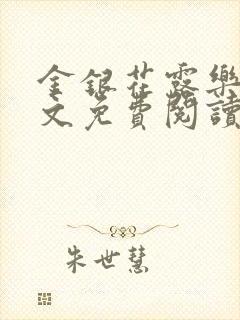 金銀花露樂
文免費閱讀
朱世慧